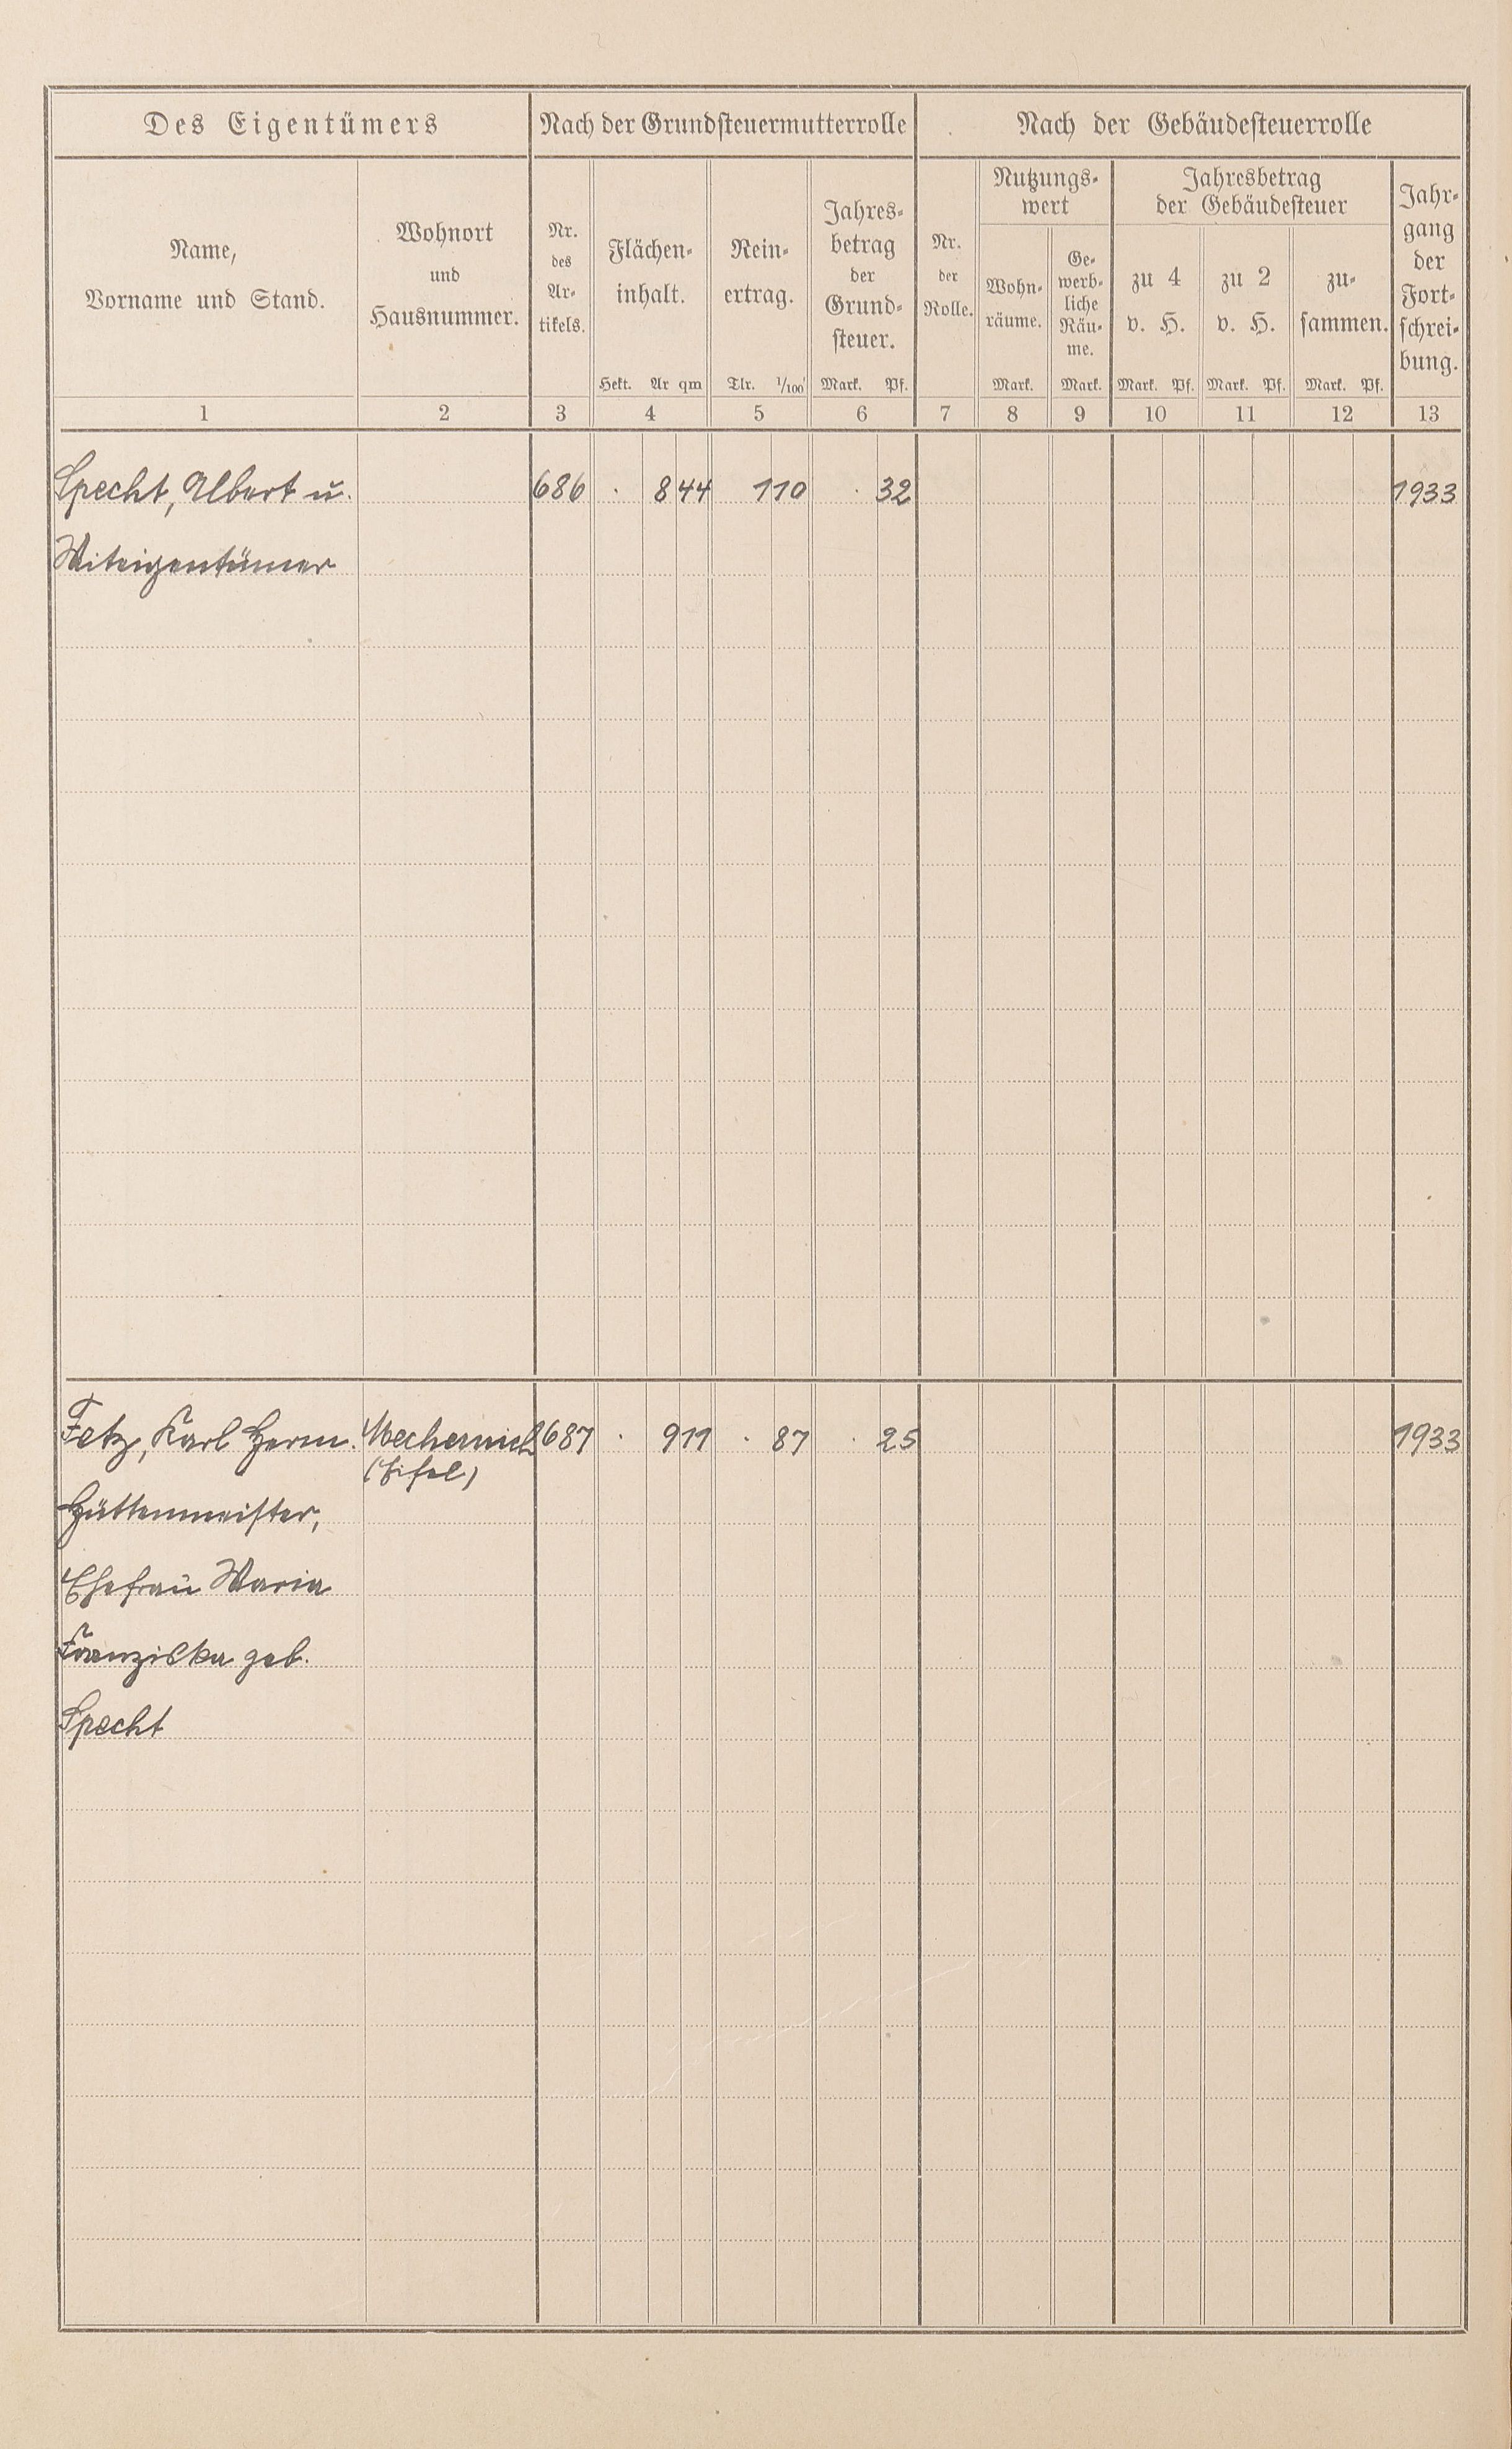 Des Eigentümers
Nach der Grundsteuermutterrolle
Nach der Gebäudesteuerrolle
Name,
Vorname und Stand.
Wohnort
und
Hausnummer.
Nr.
des
Ar-
tikels.
Flächen-
inhalt.
Hekt. Ar qm
Rein-
ertrag.
Tlr. 1/100
Jahres-
betrag
der
Grund-
steuer.
Mark. Pf.
Nr.
der
Rolle.
Nutzungs-
wert
Wohn-
räume.
Mark.
Ge-
werb-
liche
Räu-
me.
Mark.
Jahresbetrag
der Gebäudesteuer
zu 4
v. H.
Mark. Pf.
zu 2
v. H.
Mark. Pf.
zu-
sammen.
Mark. Pf.
Jahr-
gang
der
Fort-
schrei-
bung.
1 2 3 4 5 6 7 8 9 10 11 12 13
Specht, Albert u. 686 . 8 44 1 10 . 32 1933
Miteigentümer
Fetz, Karl Herm. Mechernich 687 . 9 11 . 87 . 25 1933
(Eifel)
Hüttenmeister,
Ehefrau Maria
Franziska geb.
Specht